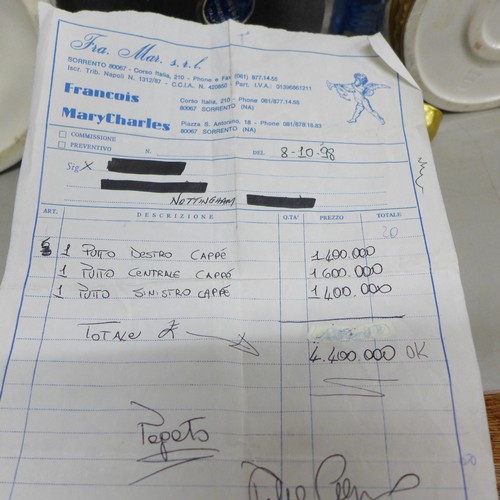 Fra. Mar. s.r.l.
SORRENTO 80067 - Corso Italia, 210 - Phone e Fax (081) 877.14.55
Iscr. Trib. Napoli N. 1312/87 - C.C.I.A. N. 420602 - Part. I.V.A.: 01306861211
Francois Corso Italia, 210 - Phone 081/877.14.55
80067 SORRENTO (NA)
MaryCharles Piazza S. Antonino, 18 - Phone 081/878.18.63
80067 SORRENTO (NA)
COMMISSIONE
PREVENTIVO N. DEL 8-10-98
Sig. X
NOTTINGHAM
ART. DESCRIZIONE Q.TA' PREZZO TOTALE
20
1 PUTTO DESTRO CAPPÉ 1400.000
1 PUTTO CENTRALE CAPPÓ 1600.000
1 PUTTO SINISTRO CAPPÉ 1400.000
TOTALE £ 4.400.000 OK
Pagato